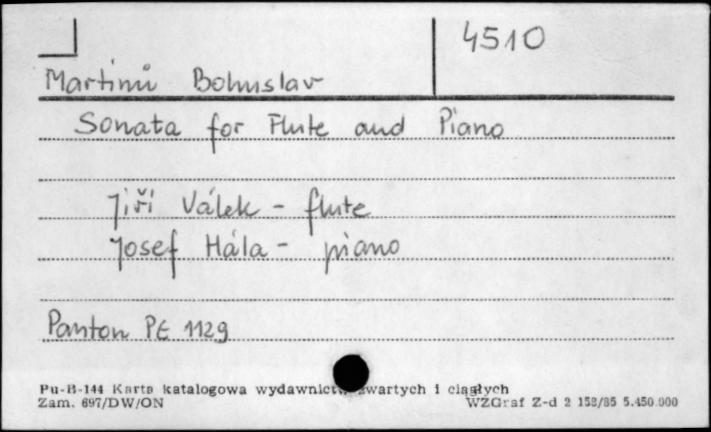 4510
Martinů Bohuslav
Sonata for Flute and Piano
Jiří Válek - flute
Josef Hála - piano
Panton PE 1129
Pu-B-144 Karta katalogowa wydawnictw zwartych i ciągłych
Zam. 697/DW/ON WZGraf Z-d 2 158/85 5.450.000